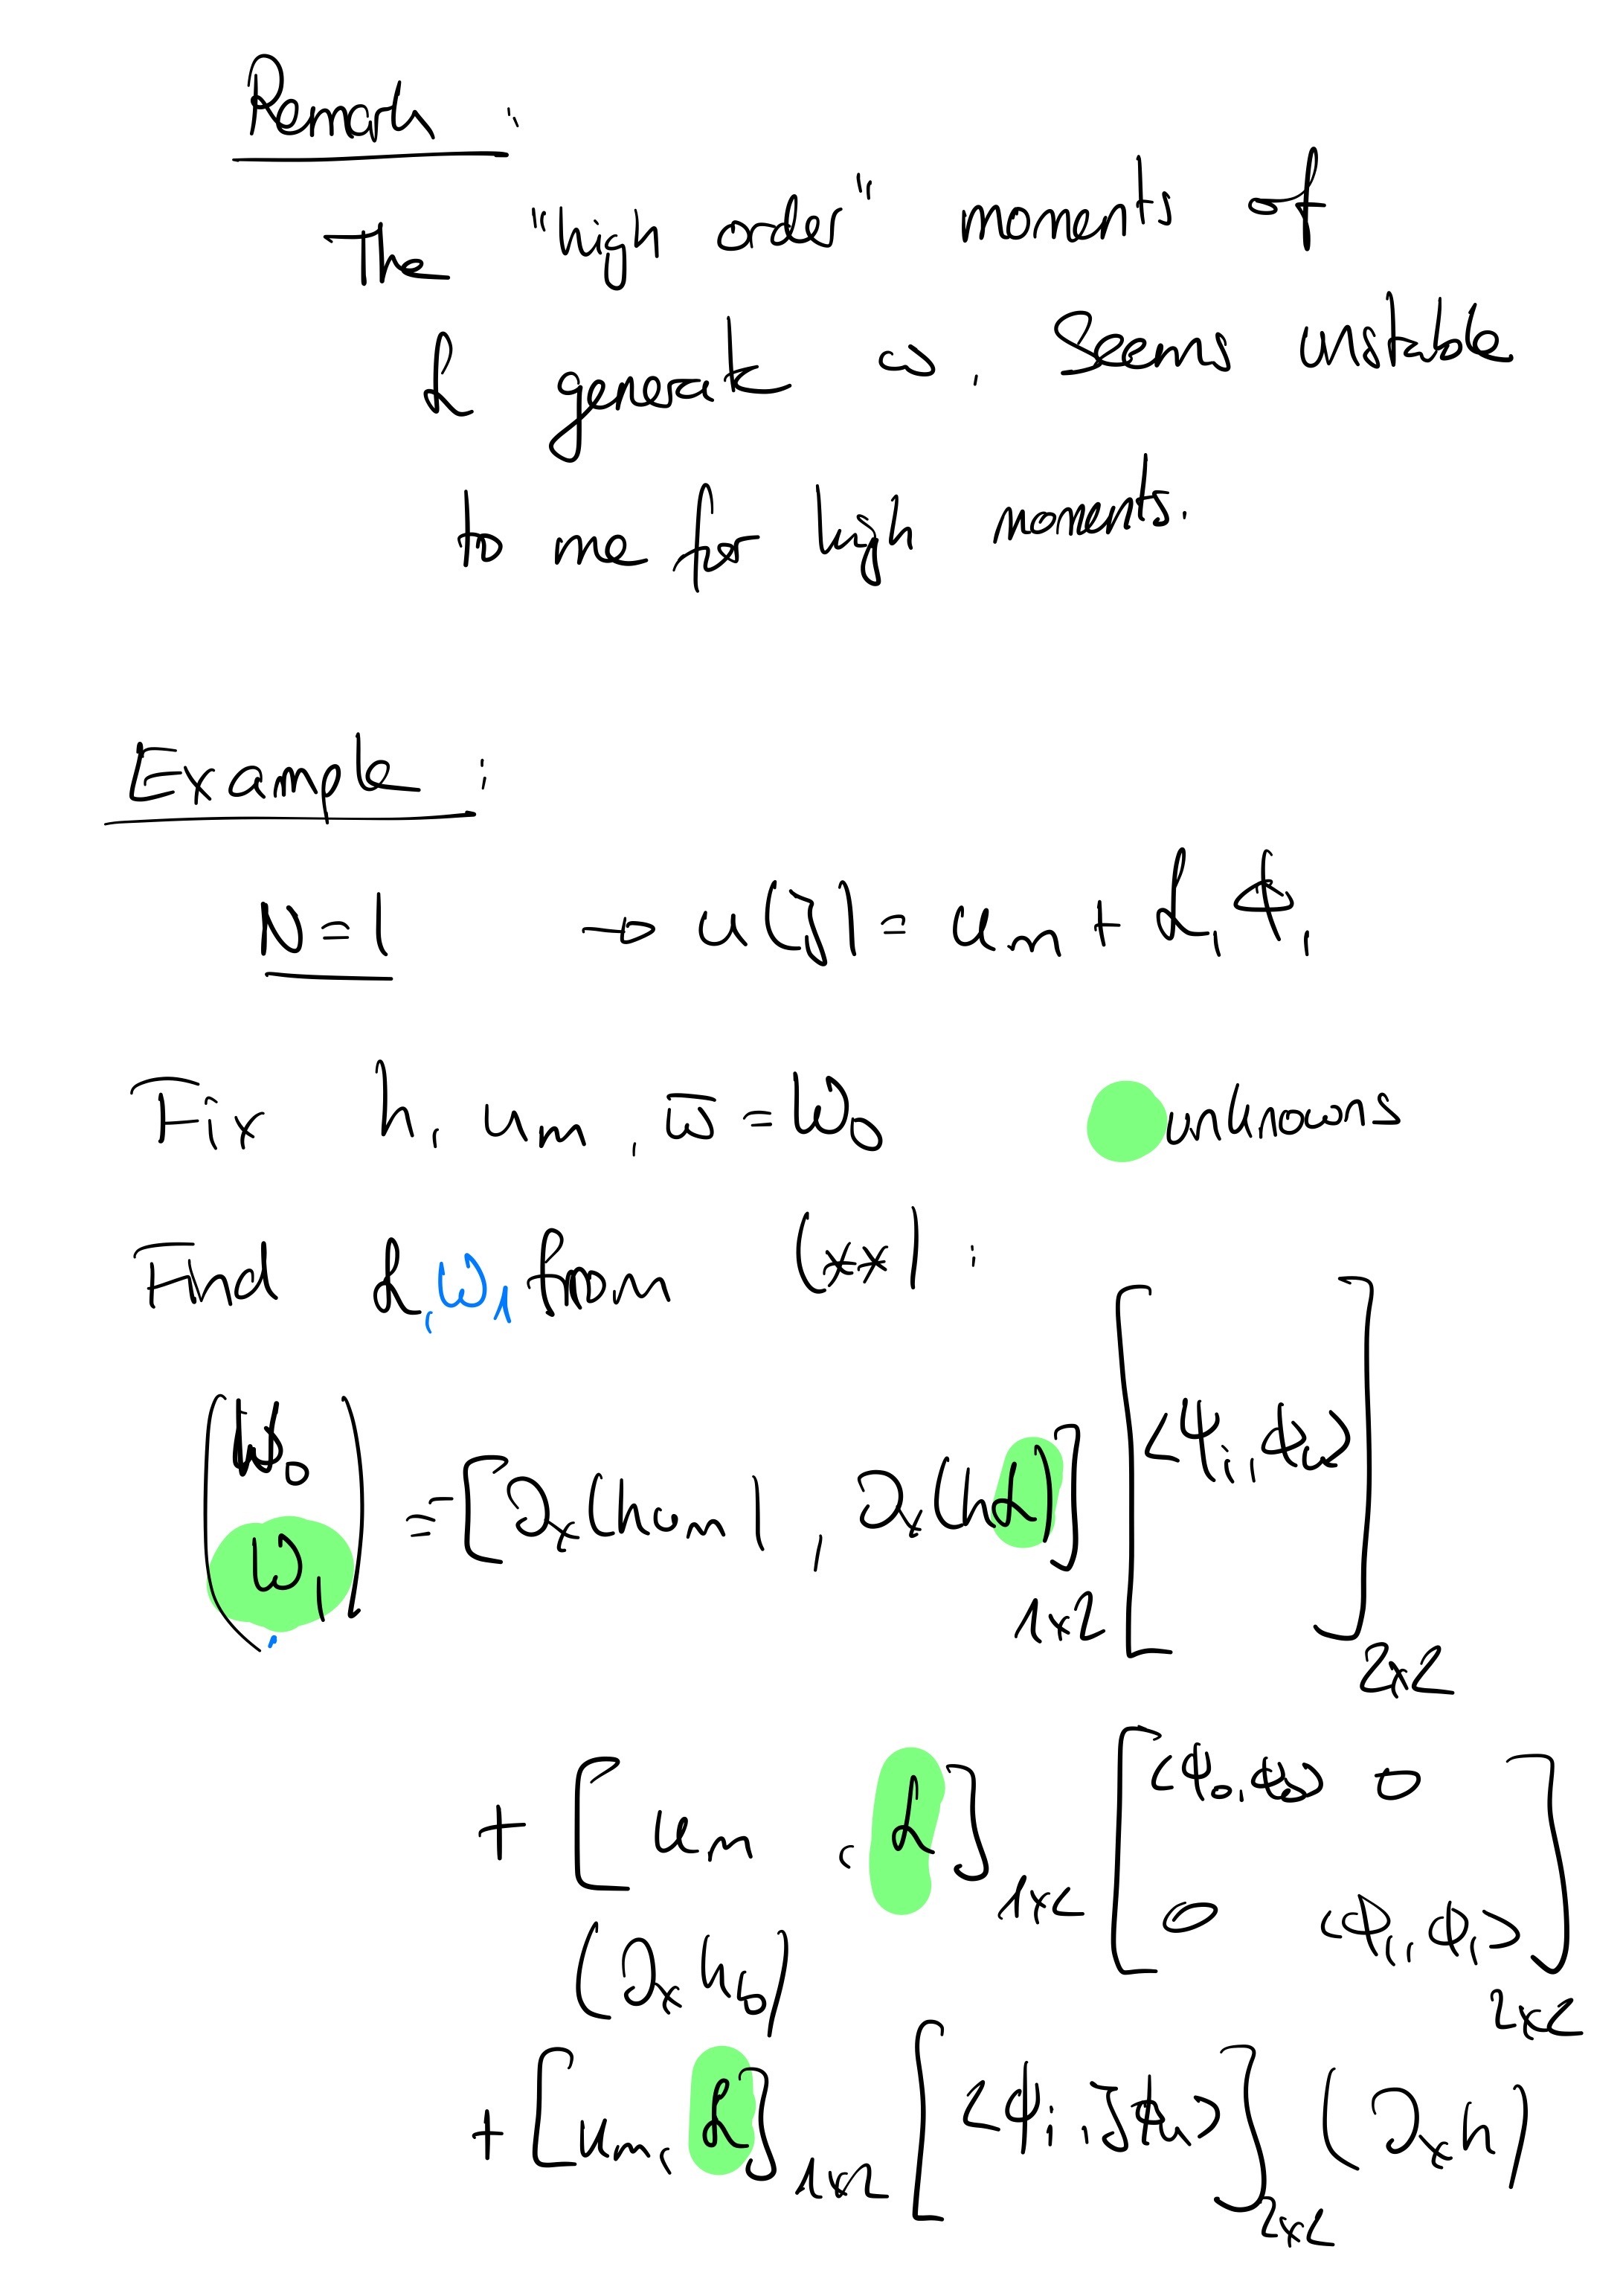 Remark :
The "high order" moments of
α generate ω. Seems unstable
to me for high moments.
Example :
N = 1 → u(ζ) = u_m + α_1 ϕ_1
Fix h, u_m, ω̅ = ω_0 unknowns
Find α, ω_1 from (**) :
(ω_0 ω_1) = [∂_x(hu_m), ∂_x(hα)]_{1x2} [<ψ_i, ϕ_k>]_{2x2}
+ [u_m, α]_{1x2} [<ϕ_0, ϕ_0> 0 0 <ϕ_1, ϕ_1>]_{2x2}
(∂_x h_b)
+ [u_m, α]_{1x2} [<ϕ_i, ζϕ_k>]_{2x2} (∂_x h)